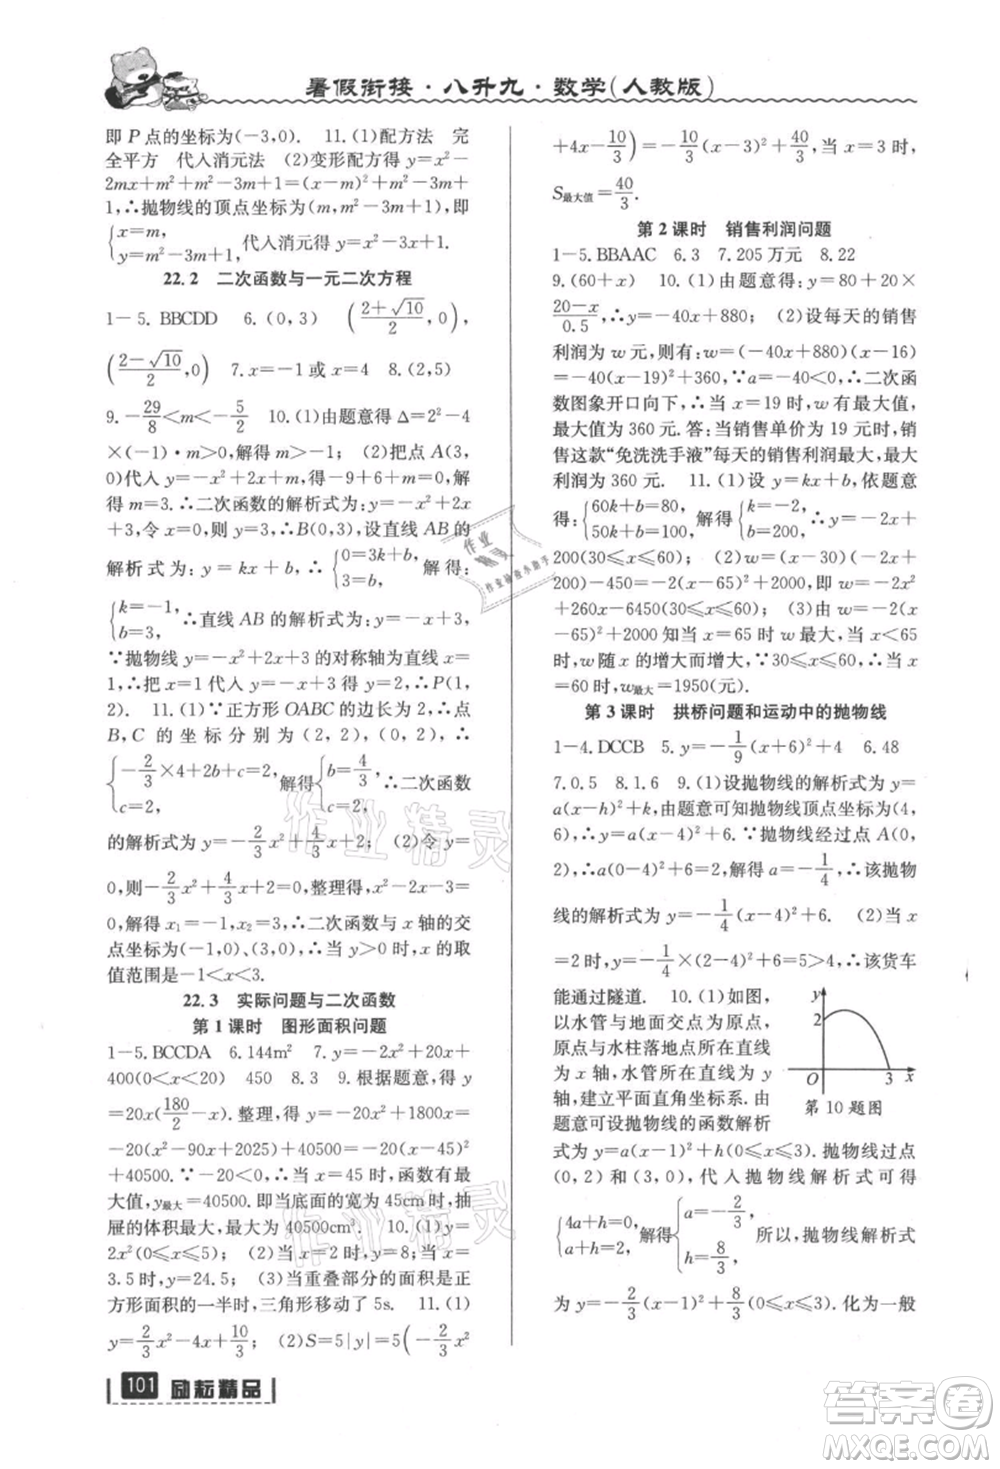 暑假衔接·八升九·数学(人教版)
即 P 点的坐标为(－3,0). 11.(1)配方法 完
全平方 代入消元法 (2)变形配方得 y=x²－
2mx+m²+m²－3m+1=(x－m)²+m²－3m+
1,∴抛物线的顶点坐标为(m,m²－3m+1),即
{x=m, y=m²－3m+1, 代入消元得 y=x²－3x+1.
22.2 二次函数与一元二次方程
1－5. BBCDD 6.(0,3) ((2+√10)/2,0),
((2－√10)/2,0) 7.x=－1或x=4 8.(2,5)
9.－29/8<m<－5/2 10.(1)由题意得 Δ=2²－4
×(－1)·m>0,解得 m>－1; (2)把点 A(3,
0)代入 y=－x²+2x+m,得－9+6+m=0,解
得 m=3.∴二次函数的解析式为:y=－x²+2x
+3,令 x=0,则 y=3,∴B(0,3),设直线AB的
解析式为:y=kx+b,∴{0=3k+b, 3=b, 解得:
{k=－1, b=3, ∴直线 AB 的解析式为:y=－x+3,
∵抛物线 y=－x²+2x+3 的对称轴为直线 x=
1,∴把 x=1 代入 y=－x+3 得 y=2,∴P(1,
2). 11.(1)∵正方形 OABC 的边长为 2,∴点
B、C 的坐标分别为(2,2),(0,2),∴
{－2/3×4+2b+c=2, c=2, 解得{b=4/3, c=2, ∴二次函数
的解析式为 y=－2/3x²+4/3x+2; (2)令 y=
0,则－2/3x²+4/3x+2=0,整理得,x²－2x－3=
0,解得 x₁=－1,x₂=3,∴二次函数与 x 轴的交
点坐标为(－1,0)、(3,0),∴当 y>0 时,x 的取
值范围是－1<x<3.
22.3 实际问题与二次函数
第 1 课时 图形面积问题
1－5. BCCDA 6.144m² 7.y=－2x²+20x+
400(0<x<20) 450 8.3 9.根据题意,得 y
=20x(180/2－x).整理,得 y=－20x²+1800x=
－20(x²－90x+2025)+40500=－20(x－45)²
+40500.∵－20<0,∴当 x=45 时,函数有最
大值,y最大=40500.即当底面的宽为 45cm时,抽
屉的体积最大,最大为 40500cm³. 10.(1)y=
2x²,(0≤x≤5);(2)当 x=2 时,y=8;当 x=
3.5 时,y=24.5; (3)当重叠部分的面积是正
方形面积的一半时,三角形移动了 5s. 11.(1)
y=2/3x²－4x+10/3; (2)S=5|y|=5(－2/3x²
101 励耘精品
+4x－10/3)=－10/3(x－3)²+40/3,当 x=3 时,
S最大值=40/3.
第 2 课时 销售利润问题
1－5. BBAAC 6.3 7.205 万元 8.22
9.(60+x) 10.(1)由题意得:y=80+20×
(20－x)/0.5,∴y=－40x+880; (2)设每天的销售
利润为 w 元,则有:w=(－40x+880)(x－16)
=－40(x－19)²+360,∵a=－40<0,∴二次函
数图象开口向下,∴当 x=19 时,w 有最大值,
最大值为 360 元.答:当销售单价为 19 元时,销
售这款“免洗洗手液”每天的销售利润最大,最大
利润为 360 元. 11.(1)设 y=kx+b,依题意
得:{60k+b=80, 50k+b=100, 解得{k=－2, b=200, ∴y=－2x+
200(30≤x≤60); (2)w=(x－30)(－2x+
200)－450=－2x²+260x－6450(30≤x≤60);
(3)w=－2(x
－65)²+2000 当 x=65 时 w 最大,当 x<65
时 w 随 x 的增大而增大,∵30≤x≤60,∴当 x
=60 时,w最大=1950(元).
第 3 课时 拱桥问题和运动中的抛物线
1－4. DCCB 5.y=－1/9(x+6)²+4 6.48
7.0.5 8.1.6 9.(1)设抛物线的解析式为 y=
a(x－h)²+k,由题意可知抛物线顶点坐标为(4,
6),∴y=a(x－4)²+6,∵抛物线经过点 A(0,
2),∴a(0－4)²+6=2,解得 a=－1/4,∴该抛物
线的解析式为 y=－1/4(x－4)²+6. (2)当 x
=2 时,y=－1/4(2－4)²+6=5>4,∴该货车
能通过隧道. 10.(1)
以水管与地面交点为原点,
原点与水柱落地点所在直线
为 x 轴,水管所在直线为 y
轴,建立平面直角坐标系.由
题意可设抛物线的函数解析
式为 y=a(x－1)²+h(0≤x≤3).抛物线过点
(0,2)和(3,0),代入抛物线解析式可得
{4a+h=0, a+h=2, 解得{a=－2/3, h=8/3, 所以,抛物线解析式
为 y=－2/3(x－1)²+8/3(0≤x≤3).化为一般
y
2
O
3
x
第 10 题图
作业精灵
作业精灵
作业
答案圈
MXQE.COM